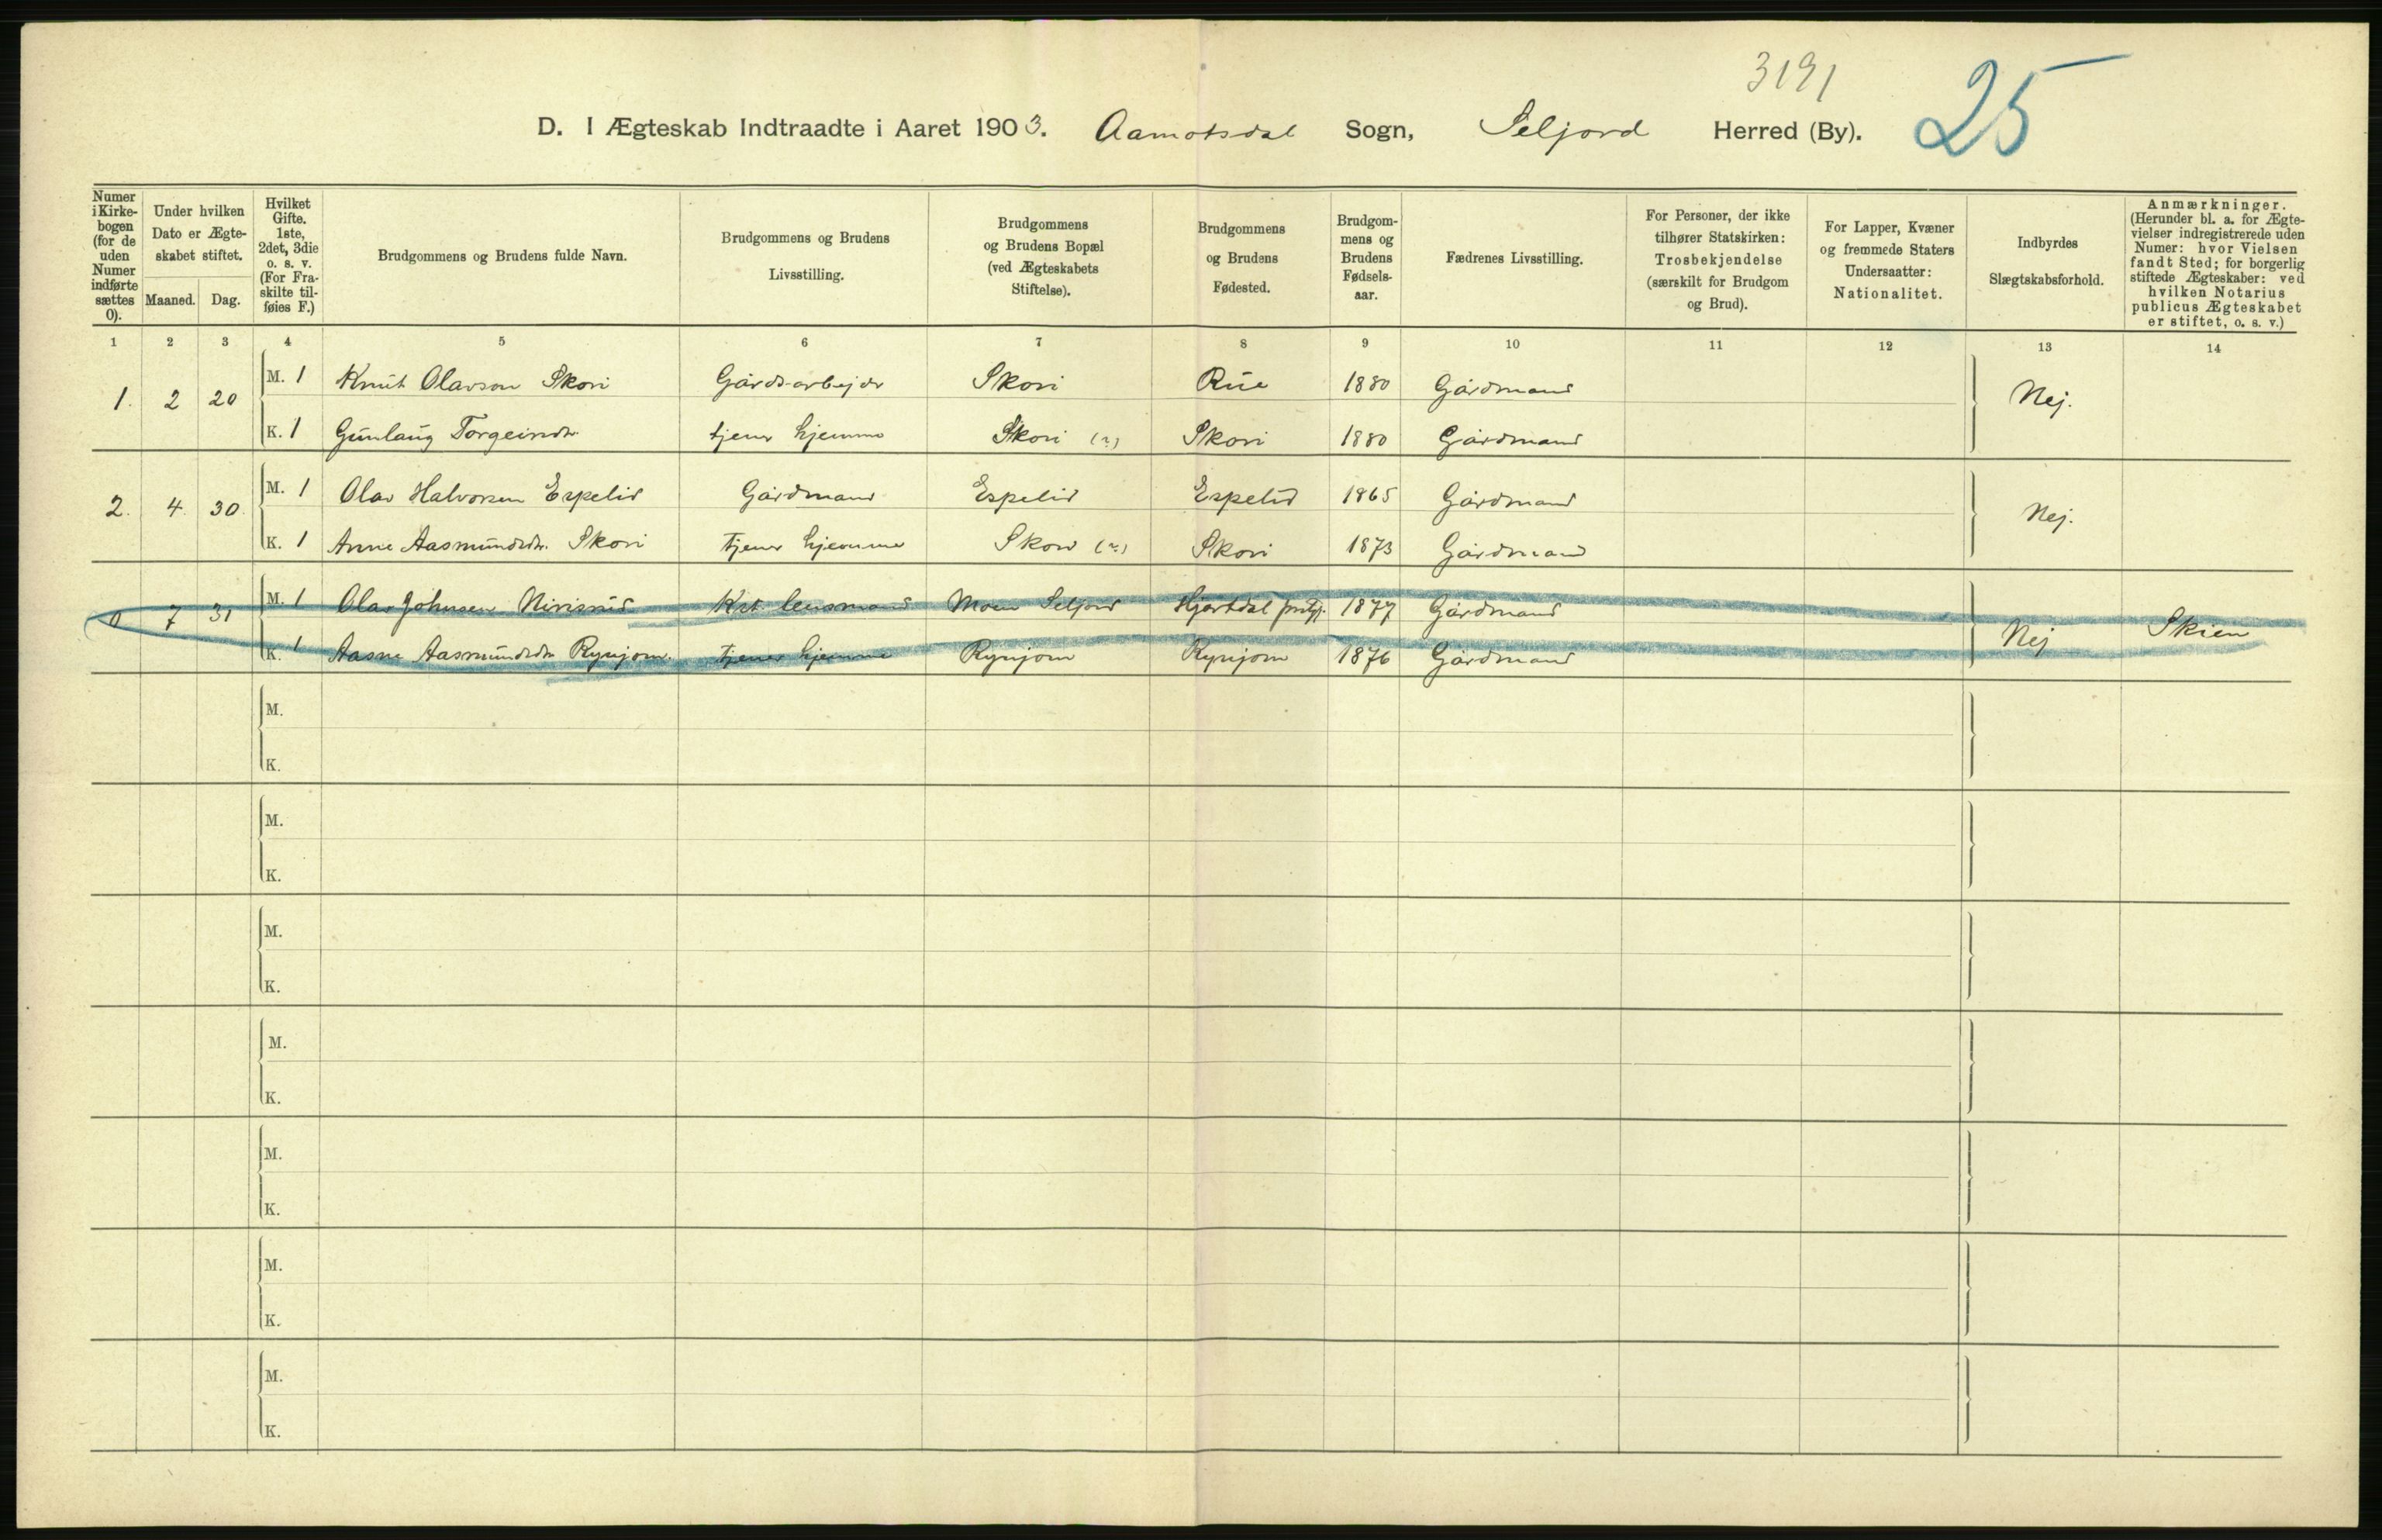 3191
25
D. I Ægteskab Indtraadte i Aaret 1903. Aamotsdal Sogn, Seljord Herred (By).
Numer i Kirke-bogen (for de uden Numer indførte sættes 0).
Under hvilken Dato er Ægte-skabet stiftet.
Maaned. Dag.
Hvilket Gifte. 1ste, 2det, 3die o. s. v. (For Fra-skilte til-føies F.)
Brudgommens og Brudens fulde Navn.
Brudgommens og Brudens Livsstilling.
Brudgommens og Brudens Bopæl (ved Ægteskabets Stiftelse).
Brudgommens og Brudens Fødested.
Brudgom-mens og Brudens Fødsels-aar.
Fædrenes Livsstilling.
For Personer, der ikke tilhører Statskirken: Trosbekjendelse (særskilt for Brudgom og Brud).
For Lapper, Kvæner og fremmede Staters Undersaatter: Nationalitet.
Indbyrdes Slægtskabsforhold.
Anmærkninger. (Herunder bl. a. for Ægte-vielser indregistrerede uden Numer: hvor Vielsen fandt Sted; for borgerlig stiftede Ægteskaber: ved hvilken Notarius publicus Ægteskabet er stiftet, o. s. v.)
1 2 3 4 5 6 7 8 9 10 11 12 13 14
1. 2 20 M. 1 Knut Olavson Skori Gårdsarbejdr Skori Rue 1880 Gårdmand Nej.
K. 1 Gunlaug Torgeirsdtr. tjener hjemme Skori (?) Skori 1880 Gårdmand
2. 4. 30. M. 1 Olav Halvorsen Espelid Gårdmand Espelid Espelid 1865 Gårdmand Nej.
K. 1 Anne Aasmundsdtr. Skori tjener hjemme Skori (?) Skori 1873 Gårdmand
0 7 31 M. 1 Olav Johnsen lensmand Moen Seljord Hjartdal prstgj. 1877 Gårdmand Nej Skien
K. 1 Aasne Aasmundsdtr Rynjom. tjener hjemme Rynjom Rynjom 1876 Gårdmand
M.
K.
M.
K.
M.
K.
M.
K.
M.
K.
M.
K.
M.
K.